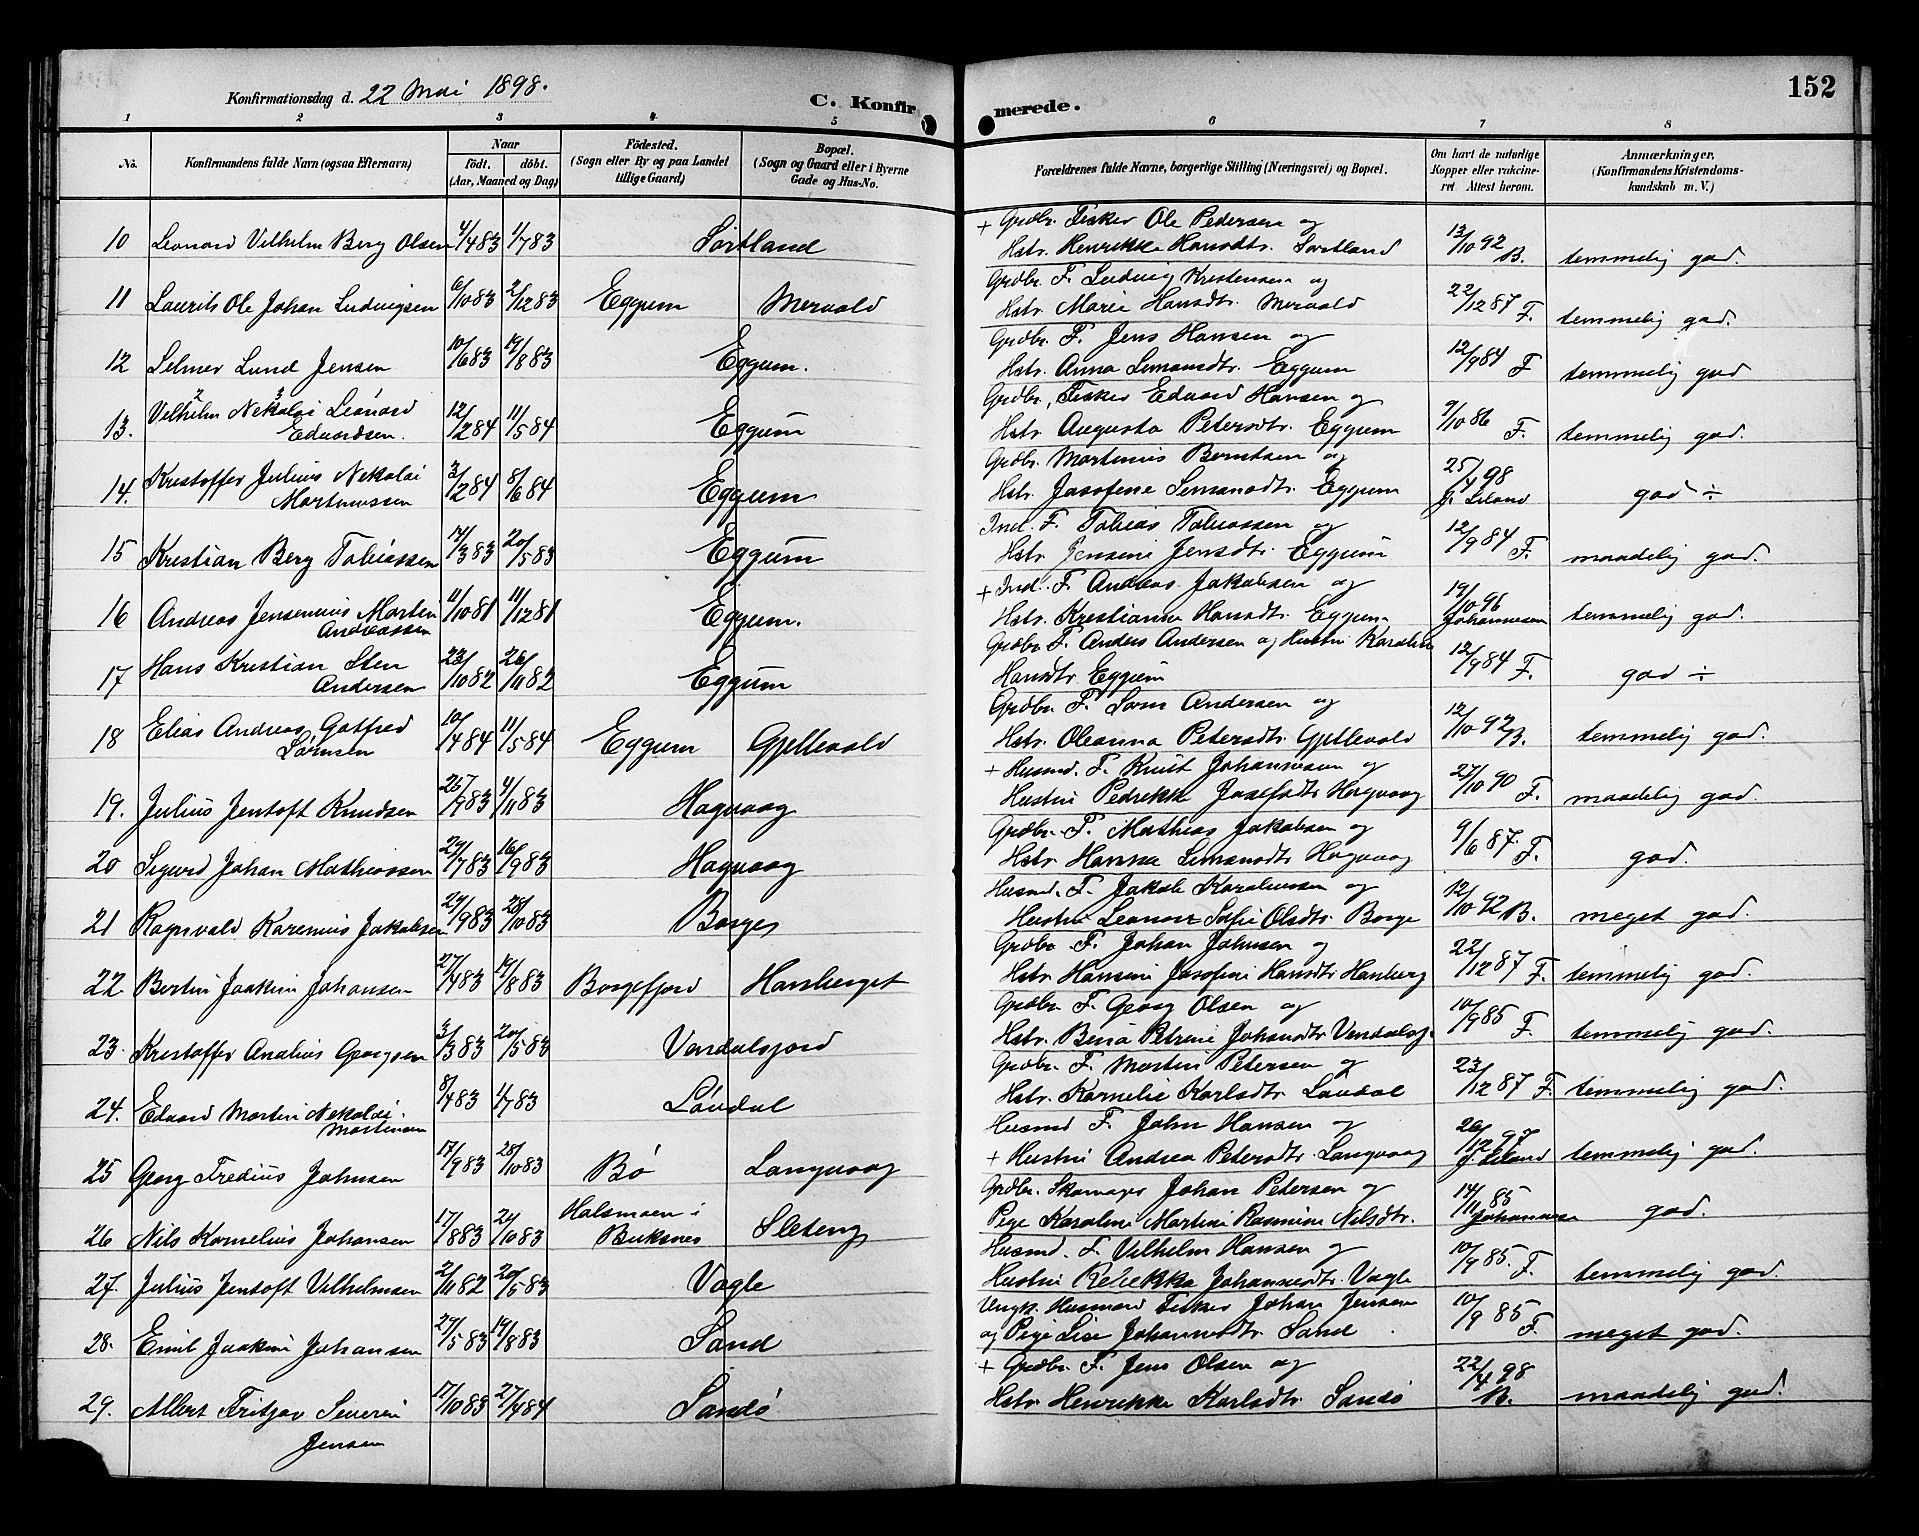 Konfirmationsdag d. 22 Mai 1898.
C. Konfir
merede.
152
1 2 3 4 5 6 7 8
No. Konfirmandens fulde Navn (ogsaa Efternavn) Naar födt. döbt. (Aar, Maaned og Dag) Födested. (Sogn eller By og paa Landet tillige Gaard) Bopæl. (Sogn og Gaard eller i Byerne Gade og Hus-No. Forældrenes fulde Navne, borgerlige Stilling (Næringsvei) og Bopæl. Om havt de naturlige Kopper eller vakcineret. Attest herom. Anmærkninger. (Konfirmandens Kristendomskundskab m. V.)
+ Grdbr. Fisker Ole Pedersen og
10 Leonard Vilhelm Berg Olsen 4/4 83 1/7 83 Sortland Hstr. Henrikke Hansdtr. Sortland 13/10 92 B. temmelig god.
Grdbr. F. Ludvig Kristensen og
11 Laurits Ole Johan Ludvigsen 6/10 83 2/12 83 Eggum Mervold Hstr. Marie Hansdtr. Mervold 22/12 87 F. temmelig god.
Grdbr. F. Jens Hansen og
12 Selmer Lund Jensen 10/6 83 19/8 83 Eggum. Hstr. Anna Simonsdtr. Eggum 12/9 84 F temmelig god
Vilhelm Nikolai Leonard Grdbr. Fisker Edvard Hansen og
13. Edvardsen. 12/2 84 11/5 84 Eggum Hstr. Augusta Petersdtr. Eggum 9/10 86 F. temmelig god.
Kristoffer Julius Nikolai Grdbr. Martinus Berntsen og
14. Martinussen 3/2 84 8/6 84 Eggum Hstr. Josefine Simonsdtr. Eggum 25/4 98 god ÷
Ind. F. Tobias Tobiassen og
15 Kristian Berg Tobiassen 17/3 83 20/5 83 Eggum Hstr. Jensine Jensdtr. Eggum 12/9 84 F. maadelig god.
+ Ind. F. Andreas Jakobsen og
16 Andreas Jensenius Martin Andreassen 11/10 81 11/12 81 Eggum. Hstr. Kristianna Hansdtr. Eggum 19/10 96 Johannesen temmelig god.
Hans Kristian Sten Grdbr. F. Anders Andersen og Hustru Karoline
17 Andersen 23/10 82 26/11 82 Eggum Hansdtr. Eggum 12/9 84 F. god ÷
Elias Andreas Gotfred Grdbr. F. Sörn Andersen og
18 Sörnsen 10/4 84 11/5 84 Eggum Gjellevold Hstr. Oleanna Petersdtr. Gjellevold 12/10 92 B. temmelig god.
+ Husmd. F. Knut Johannesen og
19. Julius Jentoft Knudsen 26/9 83 4/11 83 Hagvaag Hustru Pedrikke Josefsdtr. Hagvaag 27/10 90 F. maadelig god.
Grdbr. F. Mathias Jakobsen og
20 Sigurd Johan Mathiassen 29/7 83 16/9 83 Hagvaag Hstr. Hanna Simonsdtr. Hagvaag 9/6 87. F. god.
Husmd. F. Jakob Karoliussen og
21 Ragnvald Karenius Jakobsen 29/9 83 28/10 83 Borge Hustru Leonore Sofie Olsdtr. Borge 12/10 92 B. meget god.
Grdbr. F. Johan Johnsen og
22. Bertin Joakim Johansen 27/4 83 19/8 83 Borgefjord Hansberget Hstr. Hansine Josefine Hansdtr. Hanberg 22/12 87 F. temmelig god.
Grdbr. F. Georg Olsen og
23. Kristoffer Analius Georgsen 3/3 83 20/5 83 Vendalsjord Hstr. Berια Petrine Johansdtr. Vendalsj. 10/9 85 F. temmelig god.
Grdbr. F. Martin Petersen og
24. Edvard Martin Nikolai Martinsen 8/4 83 1/7 83 Lövdal Hstr. Kornelie Karlsdtr. Lövdal 23/12 87 F. temmelig god.
Husmd F. John Hansen og
25 Georg Fredius Johnsen 17/9 83 28/10 83 Bö Langvaag + Hustru Andrea Petersdtr. Langvaag 26/12 97 temmelig god.
Holsmoen i Grdbr. Skomager Johan Petersen og
26 Nils Kornelius Johansen 17/8 83 21/10 83 Buksnes Sleteng Pige Karoline Martine Rasmine Nilsdtr. 14/11 85 Johannesen god.
Husmd. F. Vilhelm Hansen og
27. Julius Jentoft Vilhelmsen 2/11 82 20/5 83 Vagle Hustru Rebekka Johannesdtr. Vagle 10/9 85. F. temmelig god.
Ungk. Husmand Fisker Johan Jensen
28. Emil Joakim Johansen 27/5 83 19/8 83 Sand og Pige Lise Johannesdtr. Sand. 10/9 85 F. meget god.
+ Grdbr. F. Jens Olsen og
29. Albert Fritjov Severin 17/10 83 27/4 84 Sandö Hstr. Henrikke Karlsdtr. Sandö 22/4 98 B. maadelig god.
Jensen